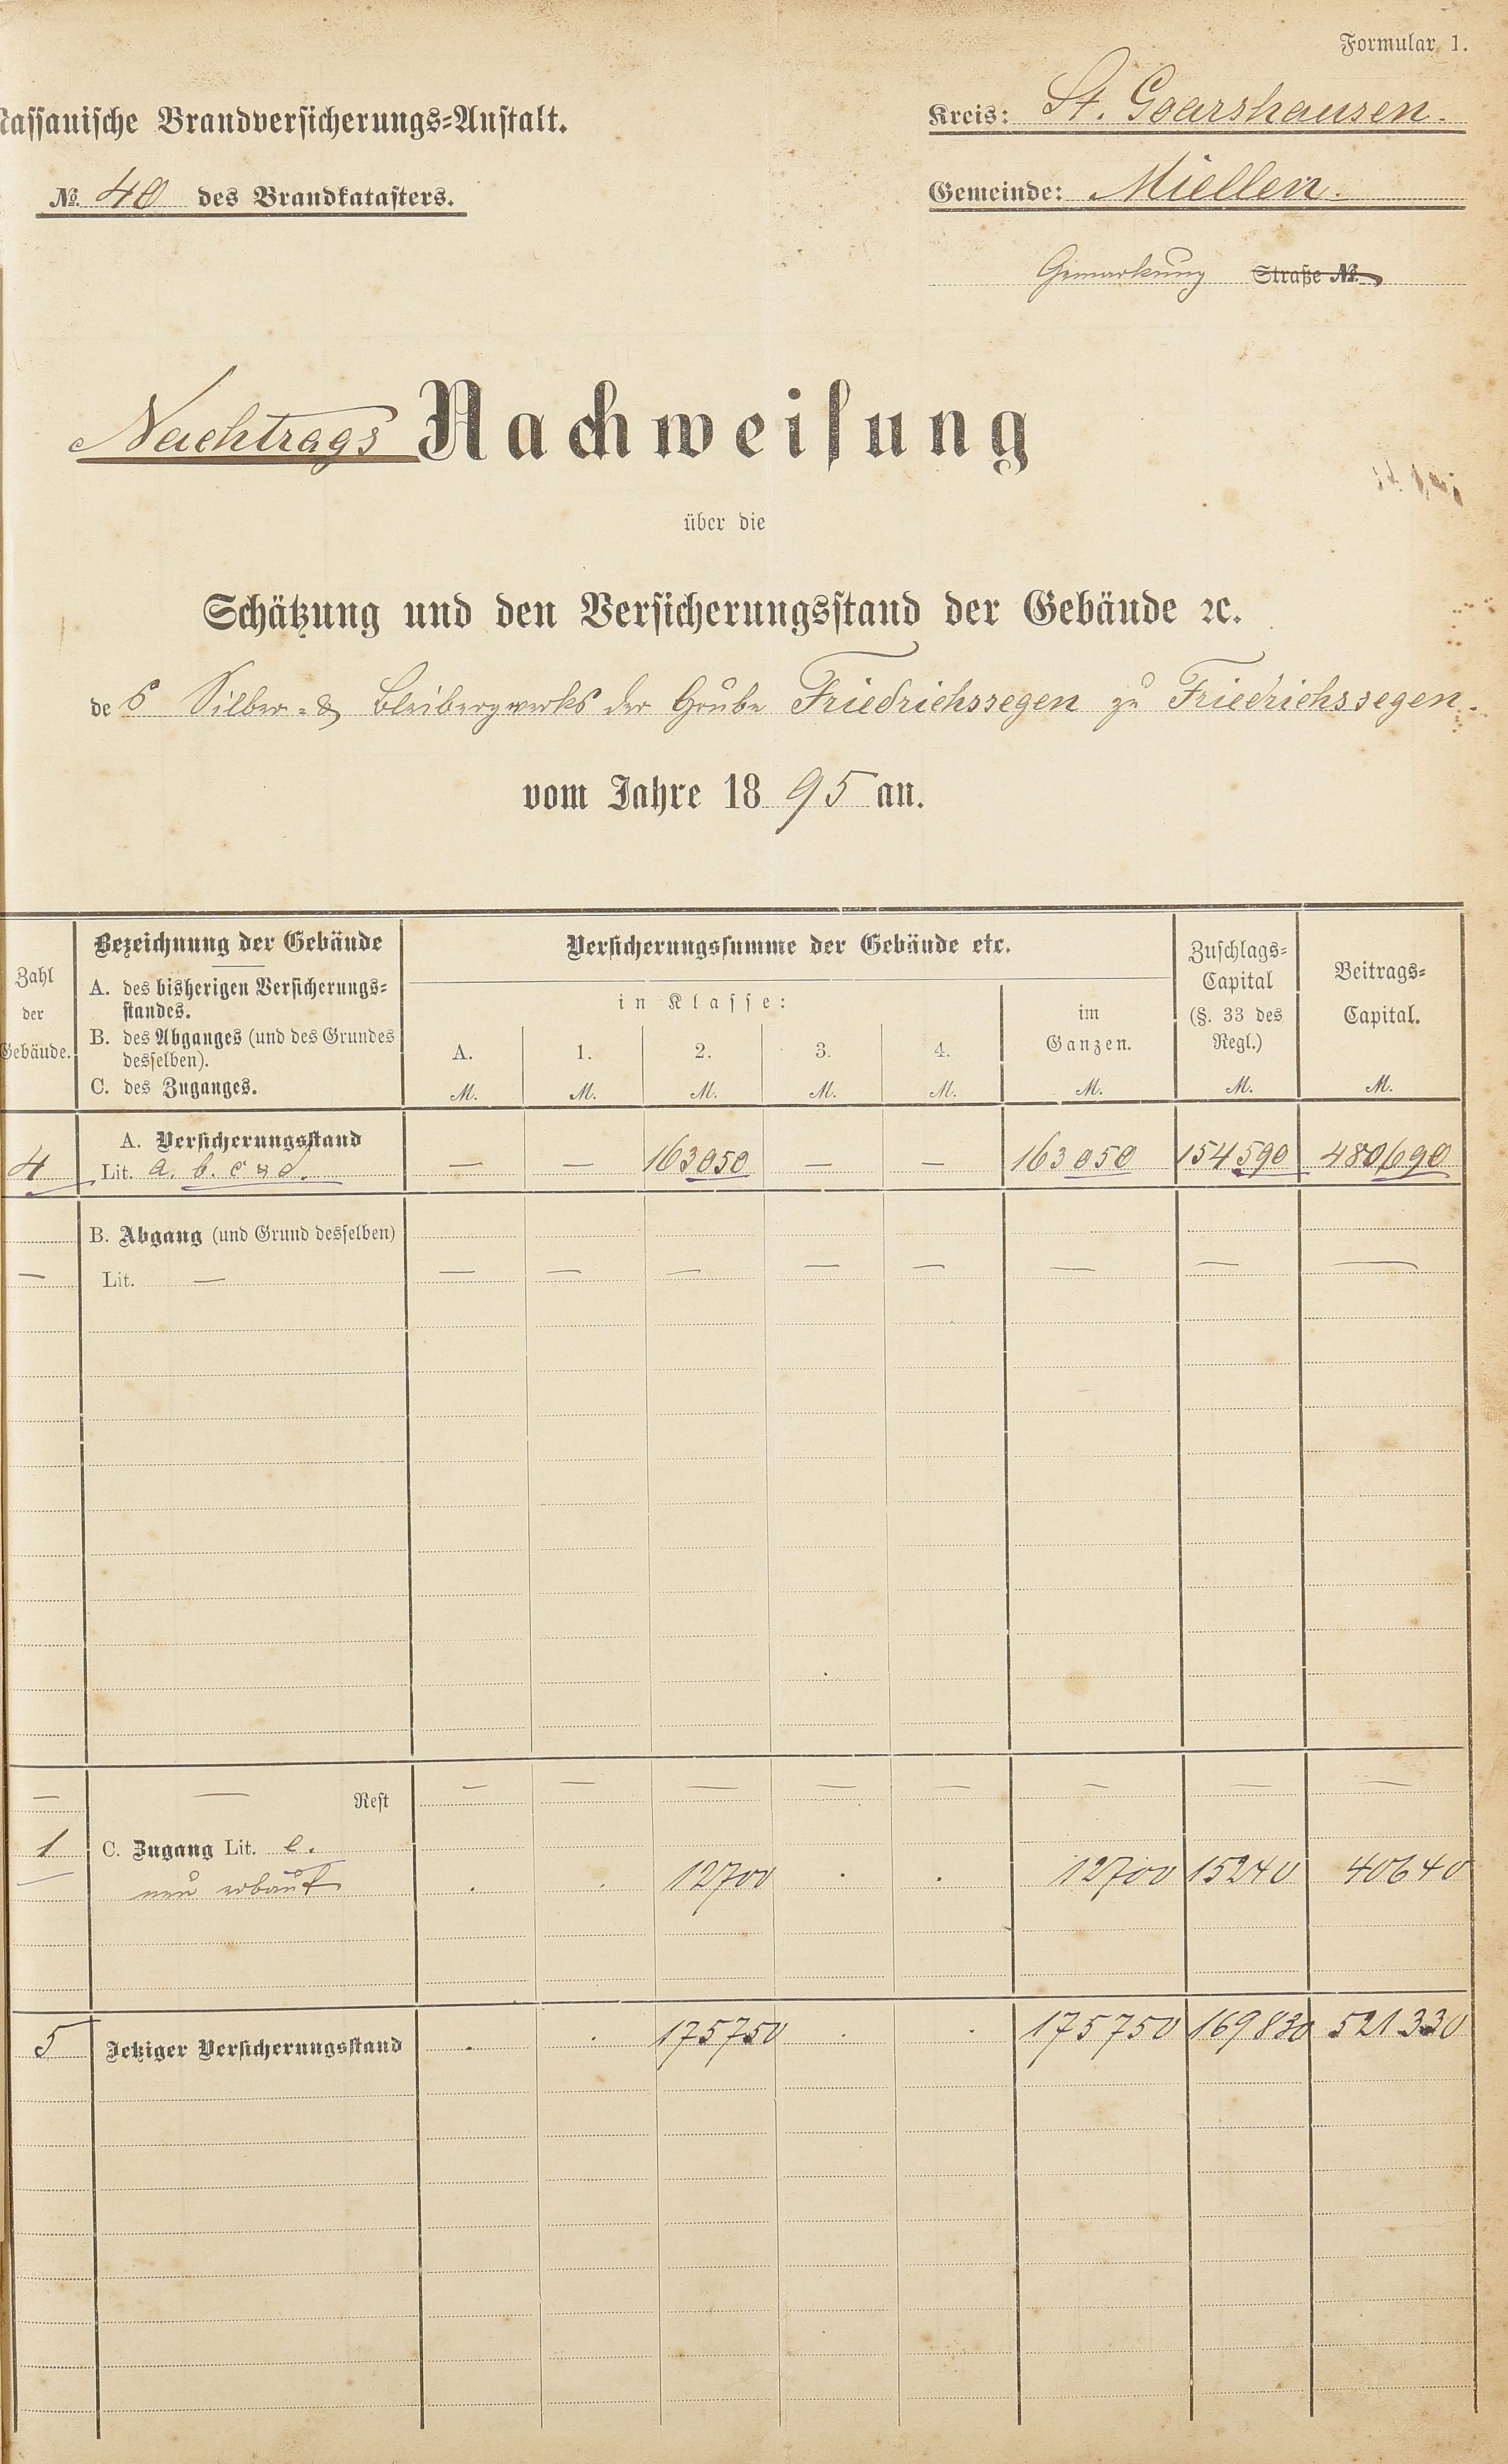 Formular 1.
Nassauische Brandversicherungs-Anstalt.
Kreis: St. Goarshausen.
№. 40 des Brandkatasters.
Gemeinde: Miellen.
Gemarkung Straße №.
Nachtrags Nachweisung
über die
Schätzung und den Versicherungsstand der Gebäude ꝛc.
des Silber- & Bleibergwerks der Grube Friedrichssegen zu Friedrichssegen.
vom Jahre 1895 an.
Zahl der Gebäude.
Bezeichnung der Gebäude
A. des bisherigen Versicherungs-
standes.
B. des Abganges (und des Grundes
desselben).
C. des Zuganges.
Versicherungssumme der Gebäude etc.
in Klasse:
A. 1. 2. 3. 4.
M. M. M. M. M.
im
Ganzen.
M.
Zuschlags-
Capital
(§. 33 des
Regl.)
M.
Beitrags-
Capital.
M.
A. Versicherungsstand
4 Lit. a. b. c & d. — — 163050 — — 163050 154590 480690
B. Abgang (und Grund desselben)
— Lit. — — — — — — — — —
— — Rest — — — — — — — —
1 C. Zugang Lit. e.
neu erbaut . . 12700 . . 12700 15240 40640
5 Jetziger Versicherungsstand . . 175750 . . 175750 169830 521330